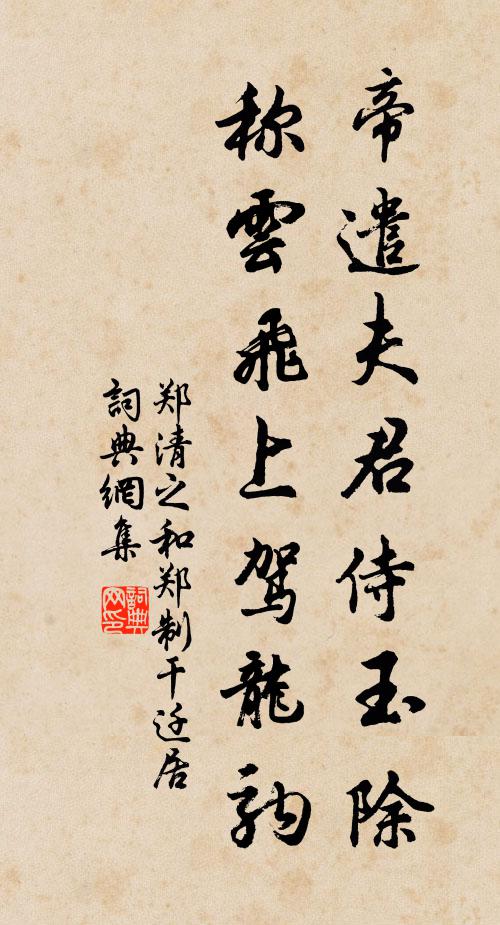 帝遣夫君侍玉除
称雲飛上駕龍駒
郑清之和郑制干迁居
詞典網集
詞典网印